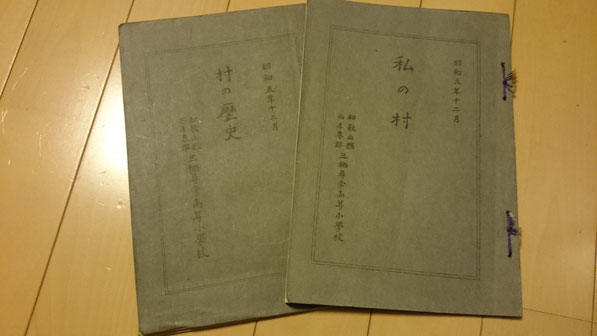 昭和五年十二月
村の歴史
和歌山縣
西牟婁郡
三栖尋常高等小學校
昭和五年十二月
私の村
和歌山縣
西牟婁郡
三栖尋常高等小學校